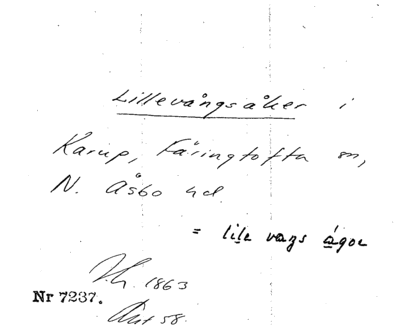 Lillevångsåker i
Karup, Färingtofta sn,
N. Åsbo hd.
= lile vaŋs ågɐr
1863
Nr 7237.
58.